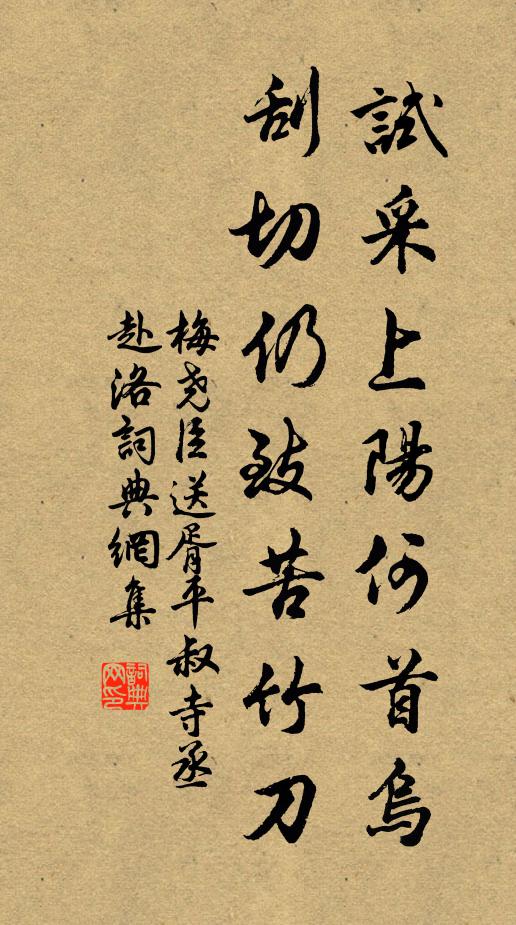 試采上陽何首烏
刮切仍致苦竹刀
梅尧臣送胥平叔寺丞
赴洛詞典網集
詞典網印